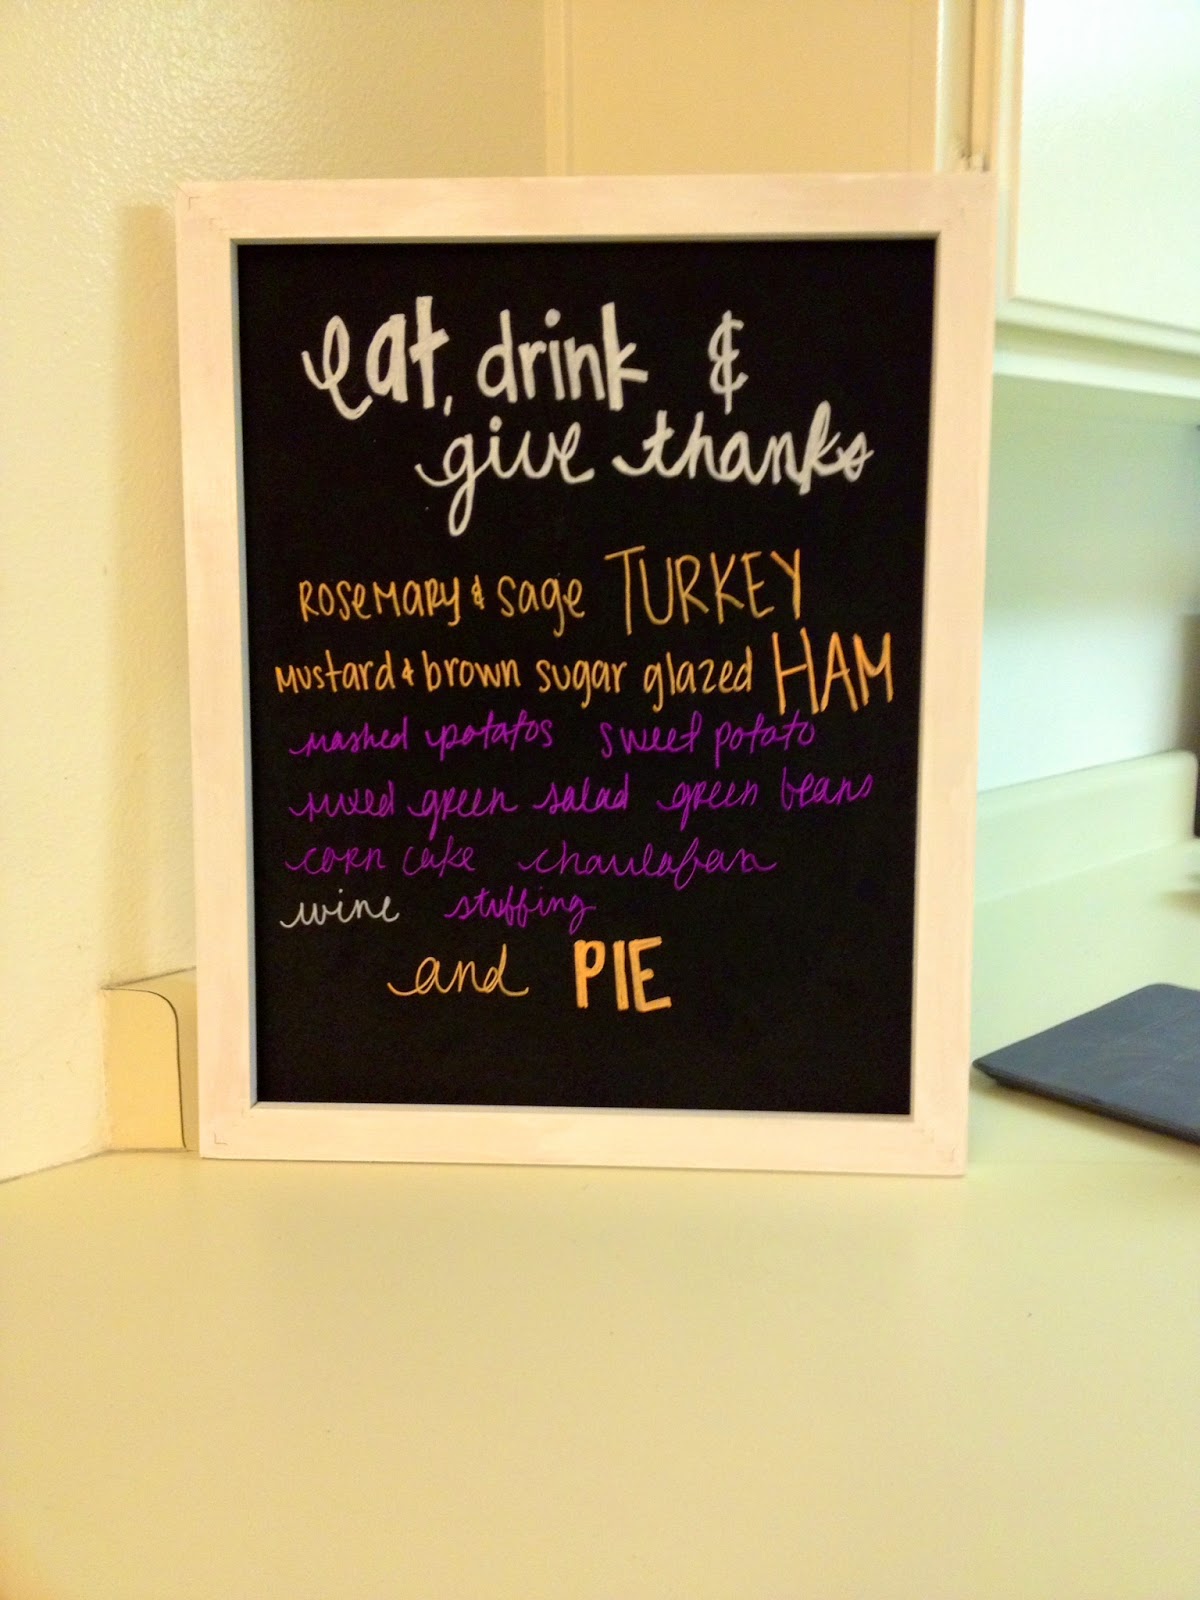 eat, drink &
give thanks
Rosemary & sage TURKEY
mustard & brown sugar glazed HAM
mashed potatos sweet potato
mixed green salad green beans
corn cake chaulafan
wine stuffing
and PIE